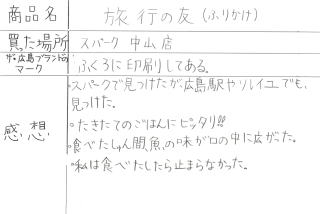 商品名 旅行の友(ふりかけ)
買った場所 スパーク 中山店
ザ・広島ブランドの
マーク ふくろに印刷してある。
感想
・スパークで見つけたが、広島駅やソレイユでも、
見つけた。
・たきたてのごはんにピッタリ!!
・食べたしゅん間、魚の味が口の中に広がった。
・私は食べたしたら止まらなかった。